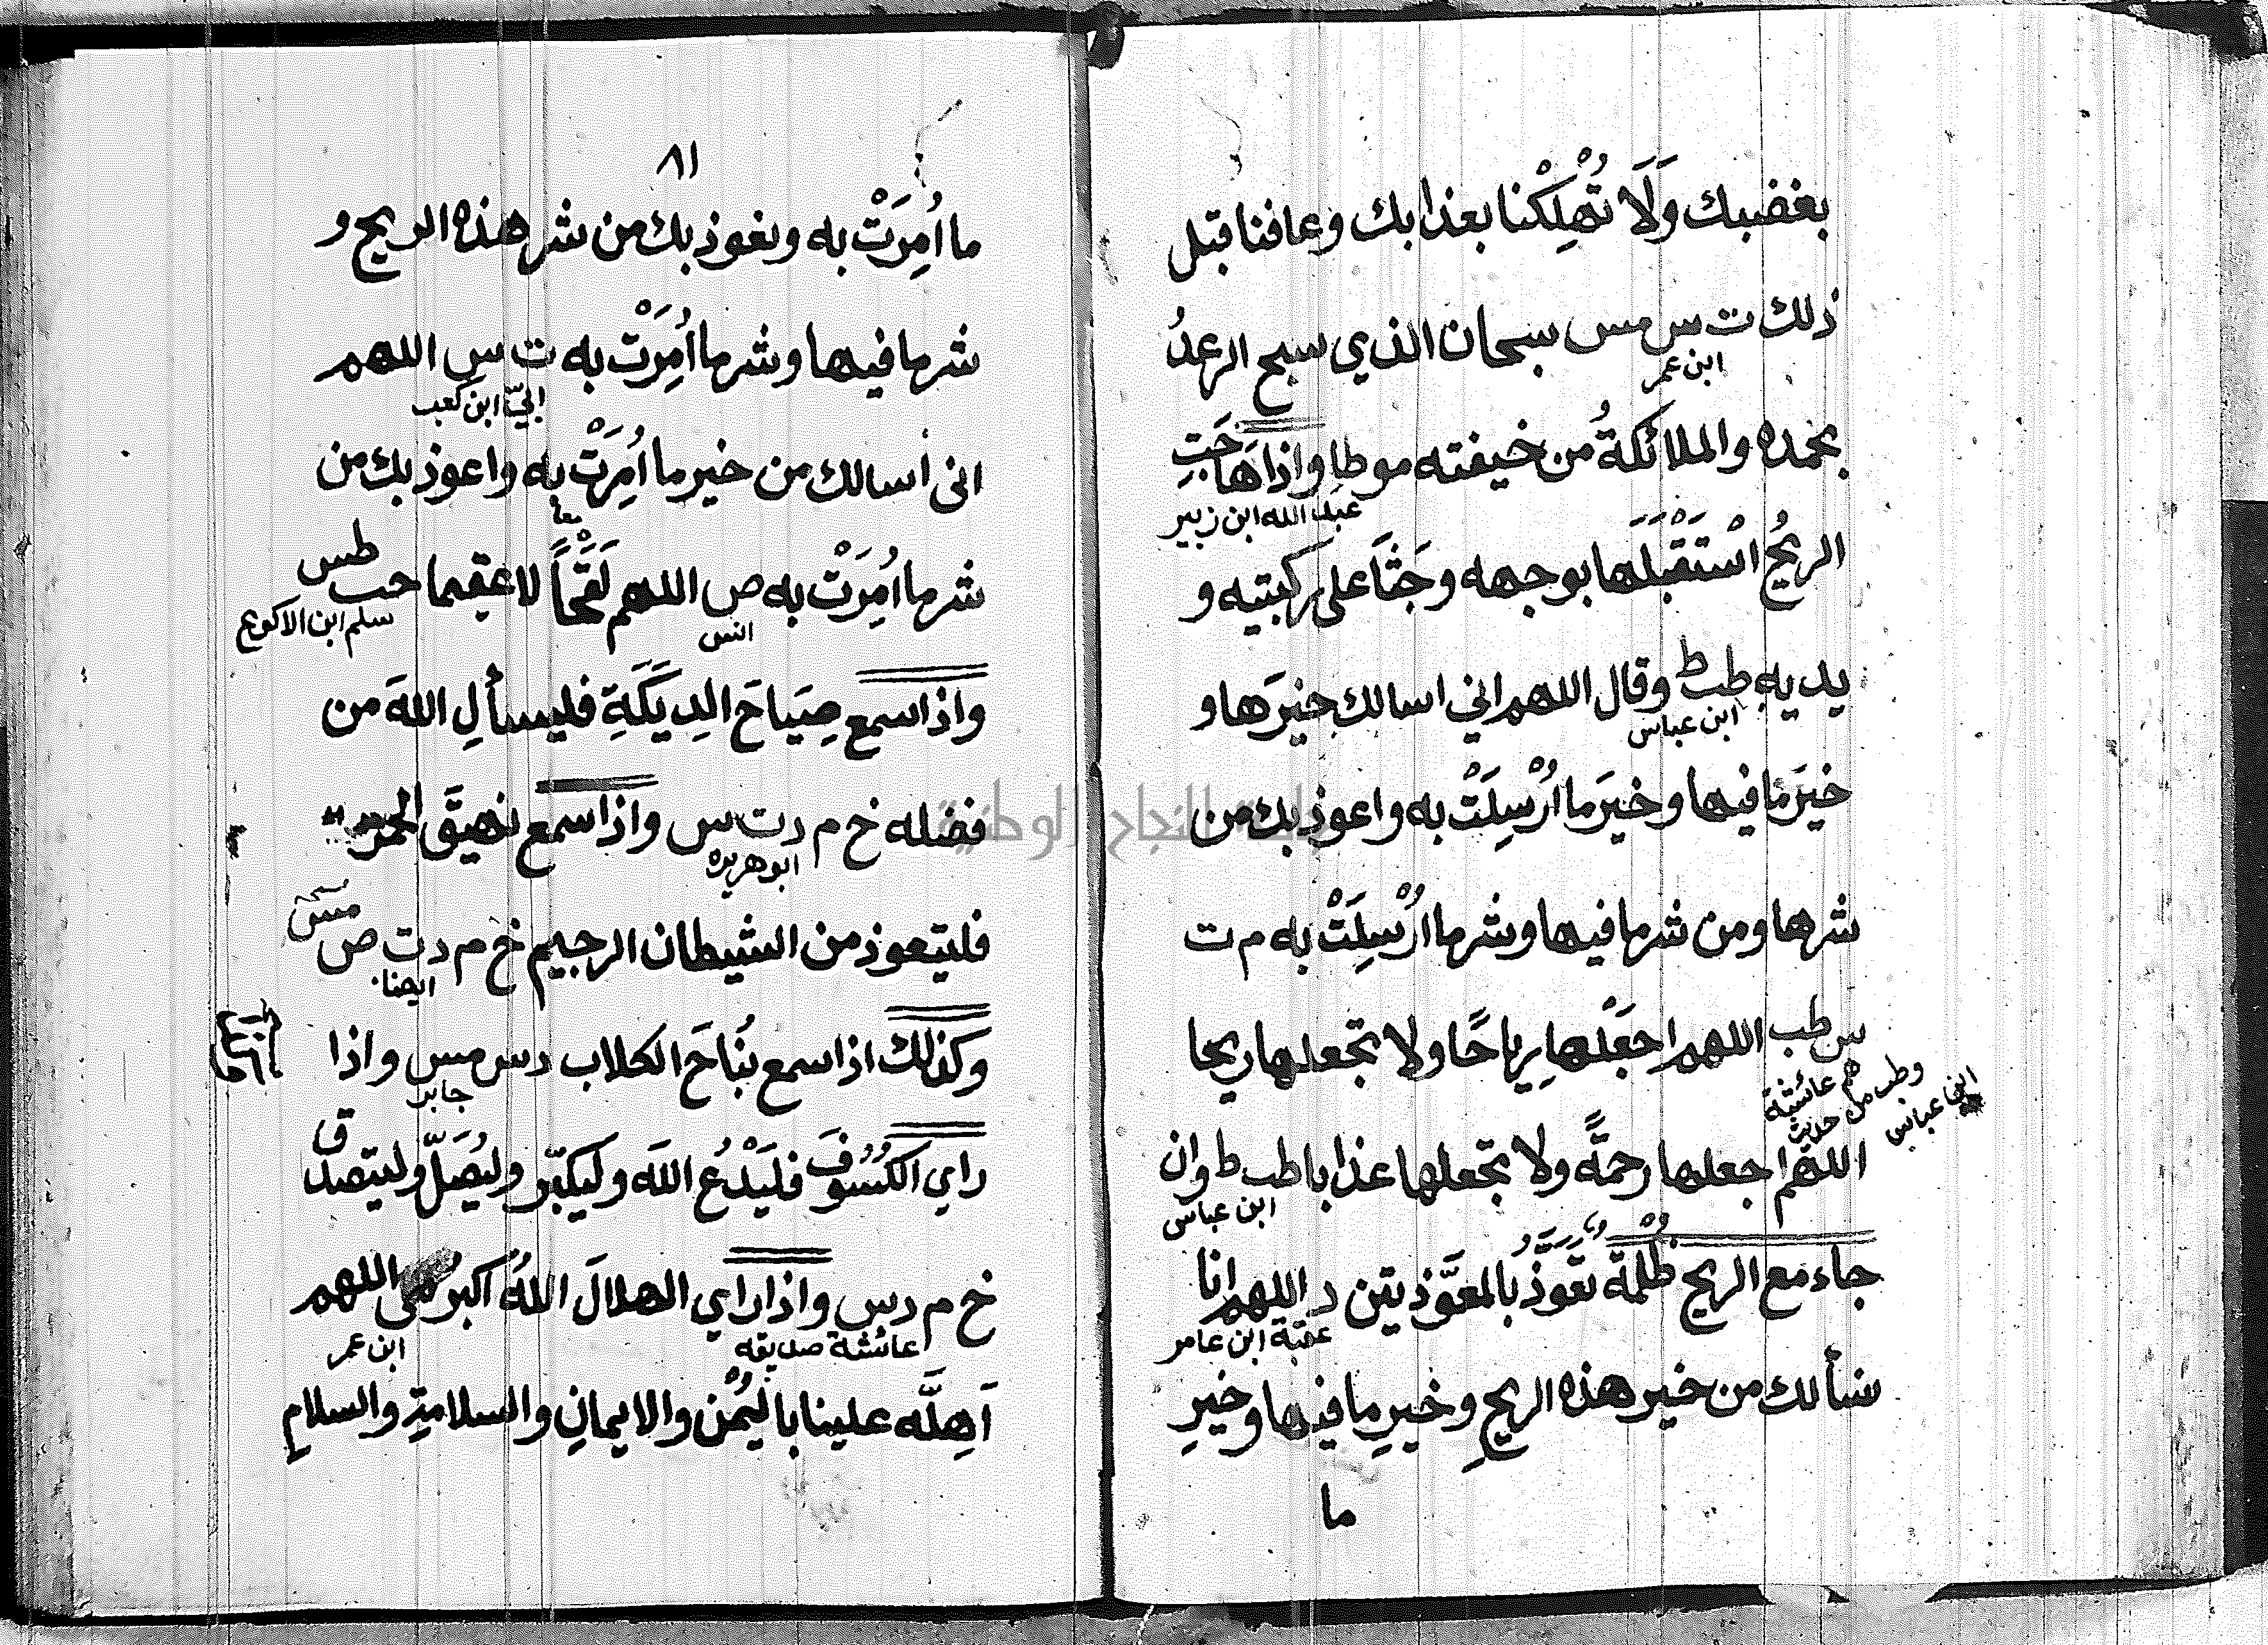 بغضبك وَلَا تُهْلِكْنا بعذابك وعافنا قبل
ذلك ت س مس سبحان الذي سبح الرعدُ
ابن عمر
بحمده والملائكةُ من خيفته موطا واذا هَاجَتِ
عبد الله ابن زبير
الريحُ اسْتَقْبَلَها بوجهه وجَثَا على ركبتيه و
يديه طب ط وقال اللهم اني اسالك خيرَها و
ابن عباس
خيرَ ما فيها وخيرَ ما اُرْسِلَتْ به واعوذ بك من
شرها ومن شر ما فيها وشر ما اُرْسِلَتْ به م ت
س طب اللهم اجعَلْها رِياحًا ولا تجعلها ريحا
هم عائشة
وطب من حديث
ابن عباس
اللهم اجعلها رحمةً ولا تجعلها عذابا طب ط وان
ابن عباس
جاء مع الريح ظُلْمة تَعَوَّذَ بالمعَوّذتين د اللهم انا
عقبة ابن عامر
نسألك من خير هذه الريحِ وخيرِ ما فيها وخيرِ
ما
٨١
ما اُمِرَتْ به ونعوذ بك من شر هذه الريح و
شر ما فيها وشر ما اُمِرَتْ به ت س اللهم
ابيّ ابن كعب
انى أسالك من خير ما اُمِرَتْ به واعوذ بك من
معا
شر ما اُمِرَتْ به ص اللهم لَقَْحاً لا عقيما حب طس
انس
سلم ابن الاكوع
واذا سمع صِيَاحَ الدِيَكَةِ فليسألِ اللهَ من
فضله خ م د ت س واذا سمع نهيقَ الحمر
ابو هريره
فليتعوذ من الشيطان الرجيم خ م د ت ص مس
ايضا
وكذلك اذا سمع نُبَاحَ الكلاب د س مس واذا
جابر
راي الكُسُوفَ فلْيَدْعُ اللهَ وليكبّر وليُصَلّ وليتصدق
خ م د س واذا راي الهلالَ اللهُ اكبر مى اللهم
عائشة صديقه
ابن عمر
اَهِلَّه علينا باليُمْن والايمانِ والسلامةِ والسلامِ